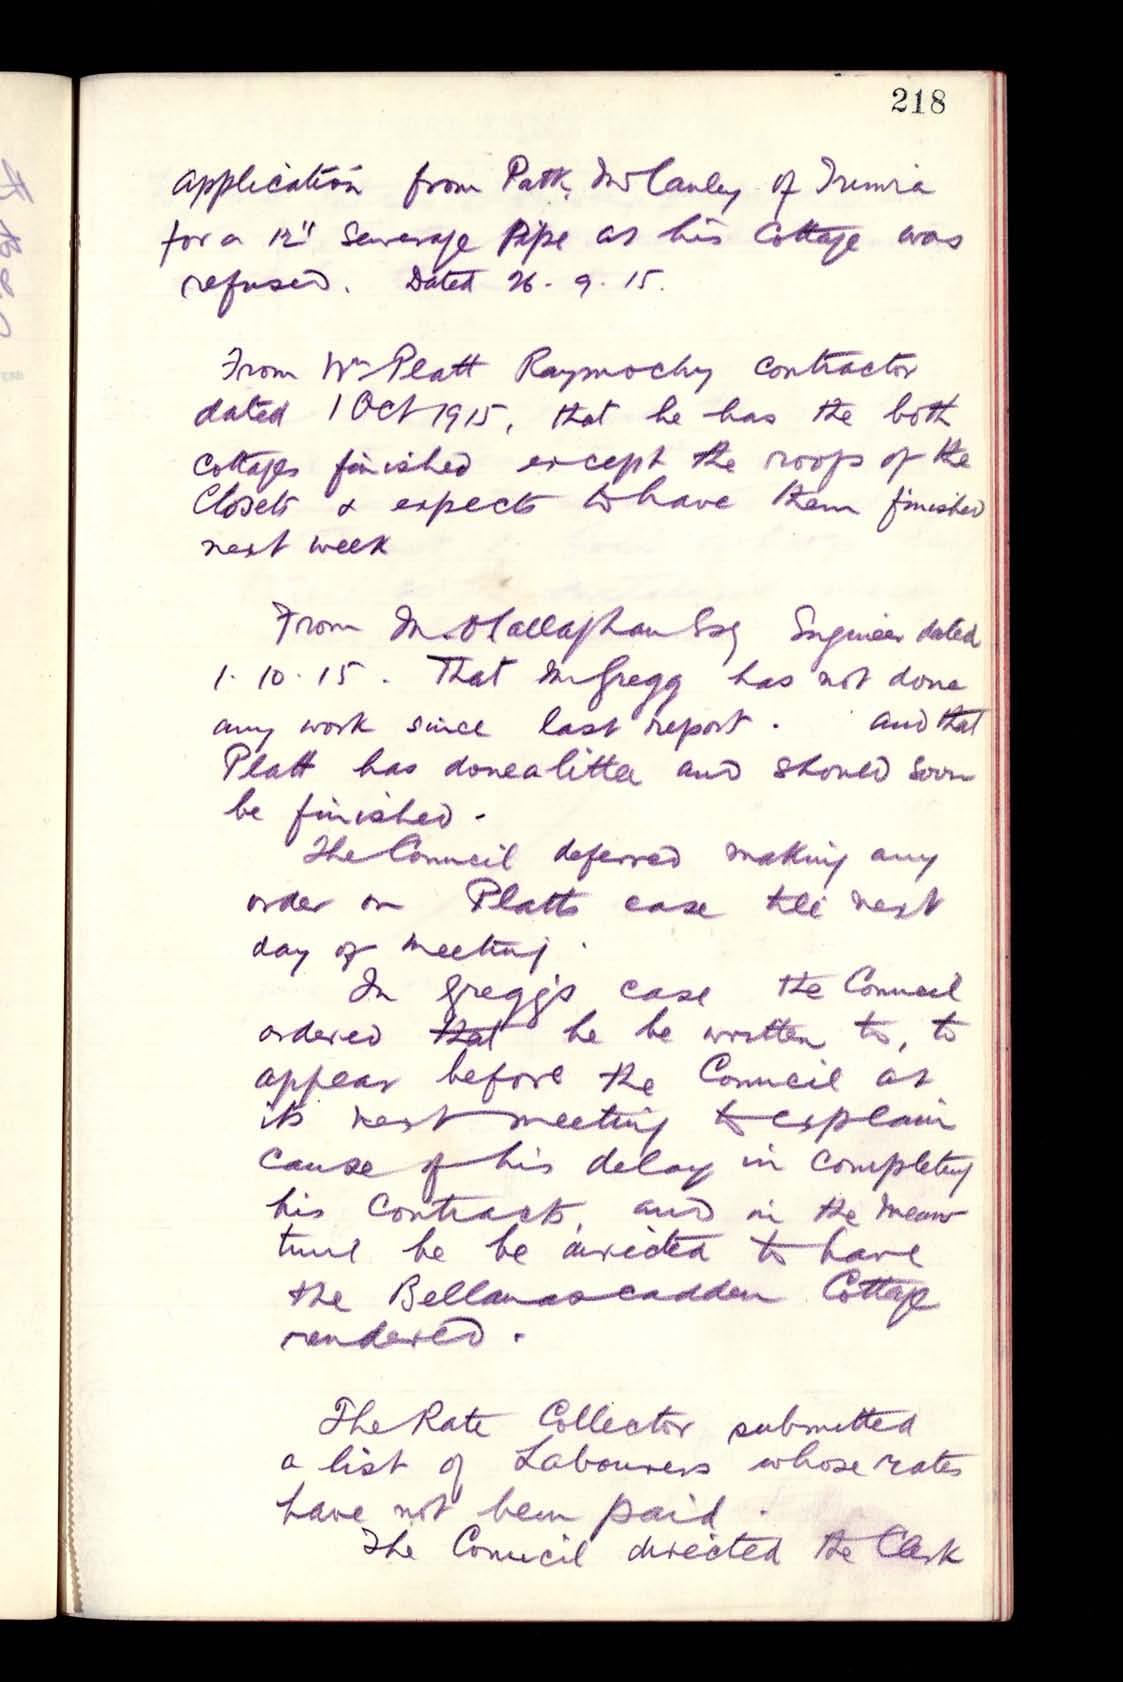 218
application from Patk. McCauley of
for a 12" Sewerage Pipe at his Cottage was
refused. Dated 26. 9. 15.
From Wm Platt Raymochy contractor
dated 1 Oct 1915, that he has the both
cottages finished except the roofs of the
Closets & expects to have them finished
next week
From M. O'Callaghan Esq Engineer dated
1. 10. 15. That McGregg has not done
any work since last report. and that
Platt has done a little and should soon
be finished.
The Council deferred making any
order on Platts case till next
day of meeting.
In Gregg's case the Council
ordered that he be written to, to
appear before the Council at
its next meeting to explain
cause of his delay in completing
his contracts, and in the mean
time he be directed to have
the Bellanascadden Cottage
rendered.
The Rate Collector submitted
a list of Labourers whose rates
have not been paid.
The Council directed the Clerk